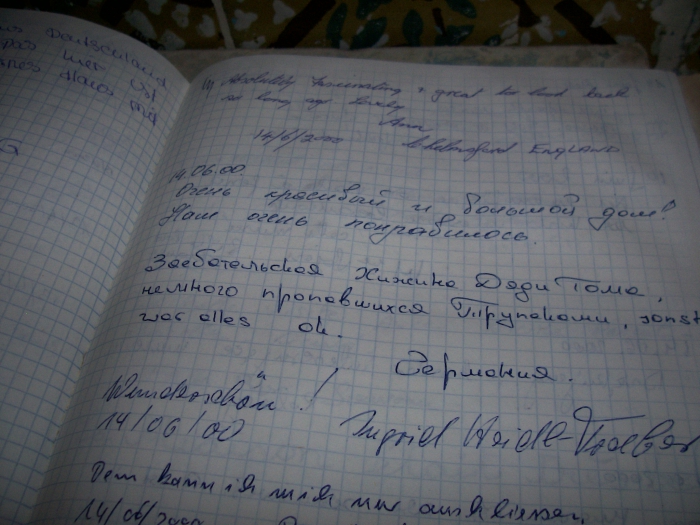 Deutschland
hier ist
Absolutely fascinating & great to look back
so long ago lovely
Ann
14/6/2000 Chelmsford ENGLAND
14.06.00.
Очень красивый и большой дом!
Нам очень понравилось.
Заебательская Хижина Дяди Тома,
немного пропавшихся Трупаками, sonst
war alles ok.
Германия.
Wunderschön!
14/06/00 Ingrid
Dem kann ich mich nur anschliessen,
14/06/2000